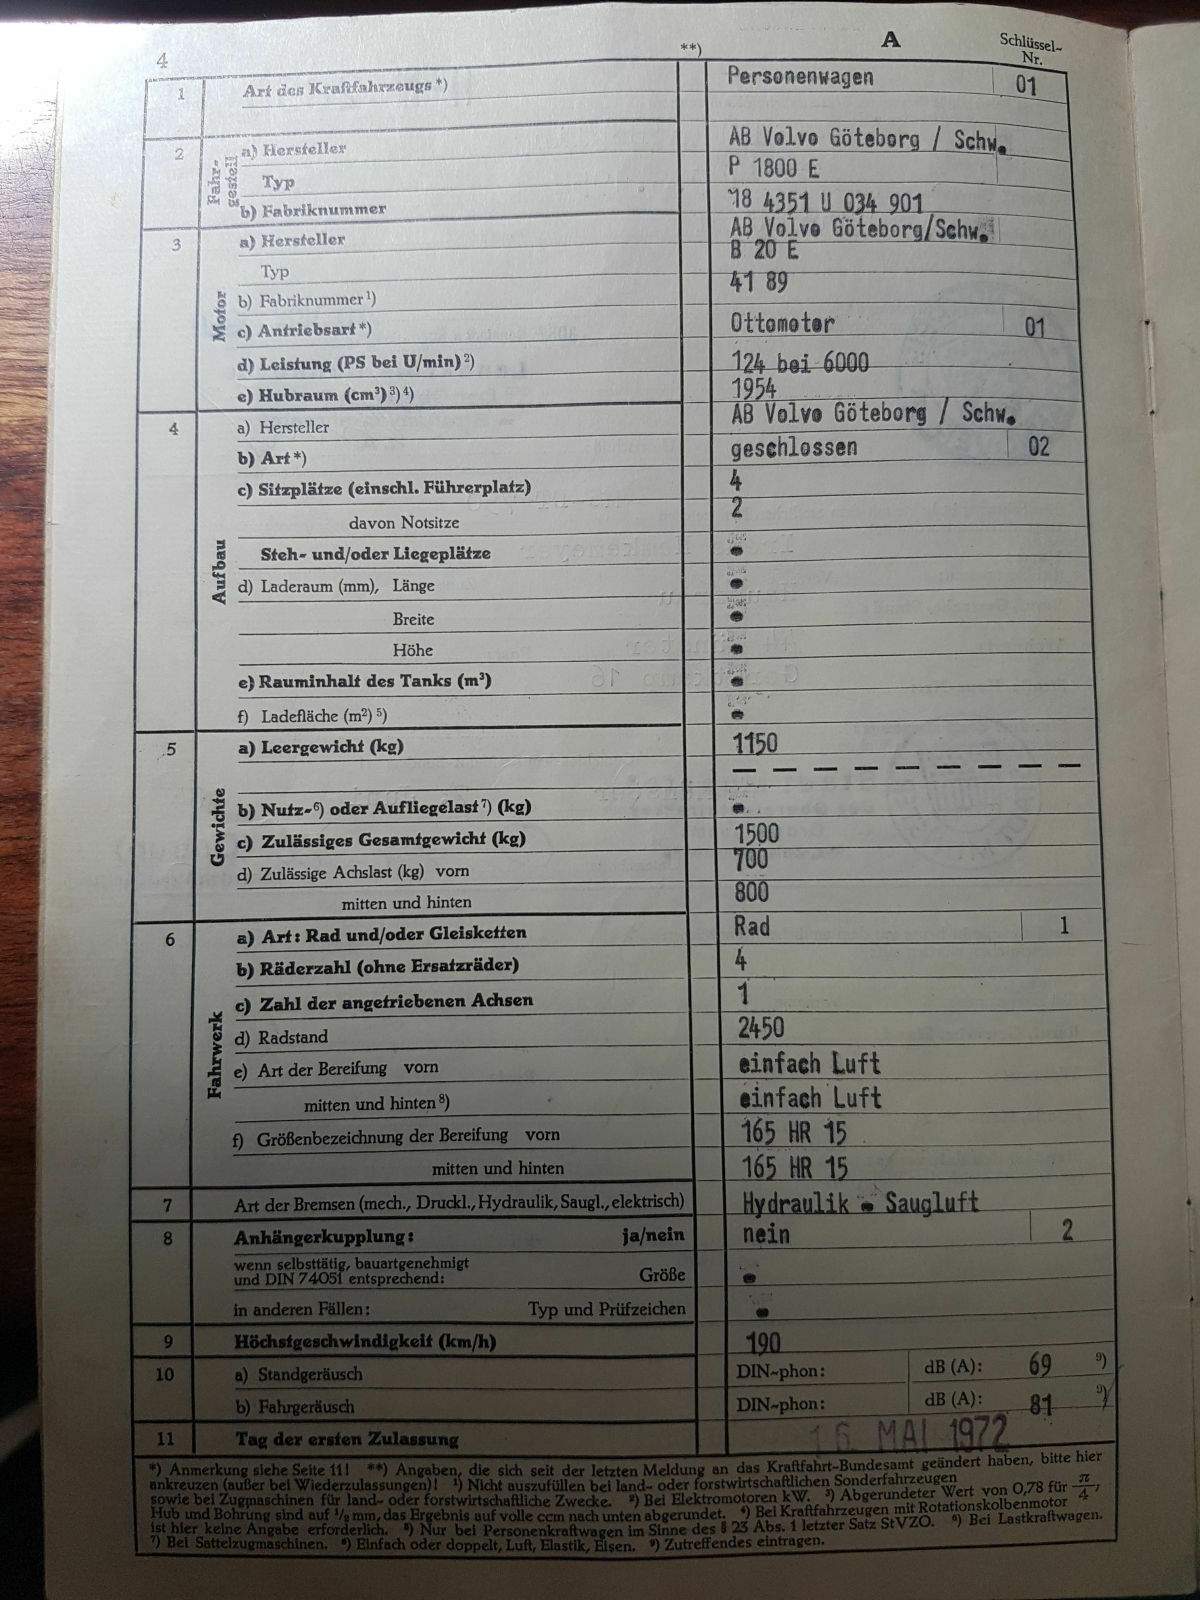 4 **) A Schlüssel-
Nr.
1 Art des Kraftfahrzeugs *) Personenwagen 01
2 Fahr-
gestell
a) Hersteller AB Volvo Göteborg / Schw.
Typ P 1800 E
b) Fabriknummer 18 4351 U 034 901
3 Motor
a) Hersteller AB Volvo Göteborg/Schw.
Typ B 20 E
b) Fabriknummer ¹) 41 89
c) Antriebsart *) Ottomotor 01
d) Leistung (PS bei U/min) ²) 124 bei 6000
e) Hubraum (cm³) ³) ⁴) 1954
4 Aufbau
a) Hersteller AB Volvo Göteborg / Schw.
b) Art *) geschlossen 02
c) Sitzplätze (einschl. Führerplatz) 4
davon Notsitze 2
Steh- und/oder Liegeplätze -
d) Laderaum (mm), Länge -
Breite -
Höhe -
e) Rauminhalt des Tanks (m³) -
f) Ladefläche (m²) ⁵) -
5 Gewichte
a) Leergewicht (kg) 1150
— — — — — — — — — — —
b) Nutz- ⁶) oder Aufliegelast ⁷) (kg) -
c) Zulässiges Gesamtgewicht (kg) 1500
d) Zulässige Achslast (kg) vorn 700
mitten und hinten 800
6 Fahrwerk
a) Art: Rad und/oder Gleisketten Rad 1
b) Räderzahl (ohne Ersatzräder) 4
c) Zahl der angetriebenen Achsen 1
d) Radstand 2450
e) Art der Bereifung vorn einfach Luft
mitten und hinten ⁸) einfach Luft
f) Größenbezeichnung der Bereifung vorn 165 HR 15
mitten und hinten 165 HR 15
7 Art der Bremsen (mech., Druckl., Hydraulik, Saugl., elektrisch) Hydraulik - Saugluft
8 Anhängerkupplung: ja/nein nein 2
wenn selbsttätig, bauartgenehmigt
und DIN 74051 entsprechend: Größe -
in anderen Fällen: Typ und Prüfzeichen -
9 Höchstgeschwindigkeit (km/h) 190
10 a) Standgeräusch DIN-phon: dB (A): 69 ⁹)
b) Fahrgeräusch DIN-phon: dB (A): 81 ⁹)
11 Tag der ersten Zulassung 16. MAI 1972
*) Anmerkung siehe Seite 11! **) Angaben, die sich seit der letzten Meldung an das Kraftfahrt-Bundesamt geändert haben, bitte hier
ankreuzen (außer bei Wiederzulassungen)! ¹) Nicht auszufüllen bei land- oder forstwirtschaftlichen Sonderfahrzeugen
sowie bei Zugmaschinen für land- oder forstwirtschaftliche Zwecke. ²) Bei Elektromotoren kW. ³) Abgerundeter Wert von 0,78 für π/4,
Hub und Bohrung sind auf ½ mm, das Ergebnis auf volle ccm nach unten abgerundet. ⁴) Bei Kraftfahrzeugen mit Rotationskolbenmotor
ist hier keine Angabe erforderlich. ⁵) Nur bei Personenkraftwagen im Sinne des § 23 Abs. 1 letzter Satz StVZO. ⁶) Bei Lastkraftwagen.
⁷) Bei Sattelzugmaschinen. ⁸) Einfach oder doppelt, Luft, Elastik, Eisen. ⁹) Zutreffendes eintragen.